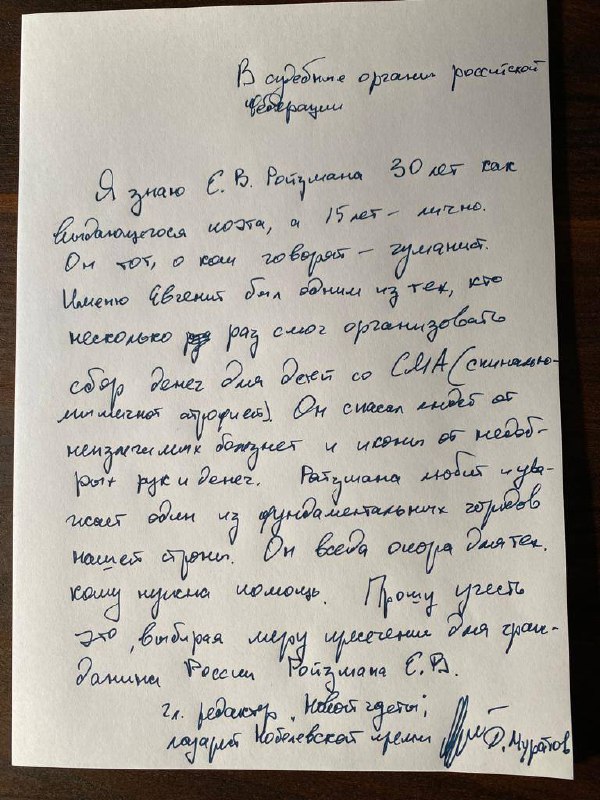 В судебные органы российской
Федерации
Я знаю Е. В. Ройзмана 30 лет как
выдающегося поэта, а 15 лет – лично.
Он тот, о ком говорят – гуманист.
Именно Евгений был одним из тех, кто
несколько раз смог организовать
сбор денег для детей со СМА (спинально-
мышечной атрофией). Он спасал людей от
неизлечимых болезней и иконы от недоб-
рых рук и денег. Ройзмана любит и ува-
жает один из фундаментальных городов
нашей страны. Он всегда опора для тех,
кому нужна помощь. Прошу учесть
это, выбирая меру пресечения для граж-
данина России Ройзмана Е. В.
гл. редактор "Новой газеты",
лауреат Нобелевской премии Д. Муратов